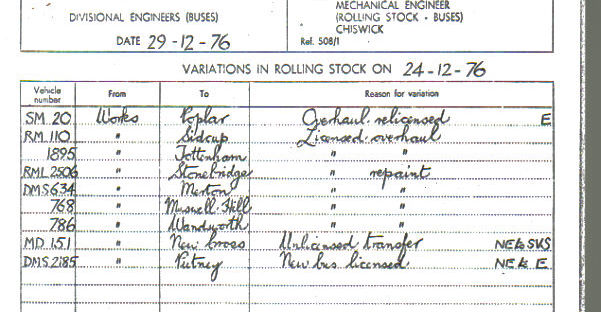 DIVISIONAL ENGINEERS (BUSES)
DATE 29-12-76
MECHANICAL ENGINEER
(ROLLING STOCK - BUSES)
CHISWICK
Ref. 508/1
VARIATIONS IN ROLLING STOCK ON 24-12-76
Vehicle number From To Reason for variation
SM 20 Works Poplar Overhaul relicensed E
RM 110 " Sidcup Licensed overhaul
1895 " Tottenham " "
RML 2506 " Stonebridge " repaint
DMS 634 " Merton " "
768 " Muswell Hill " "
786 " Wandworth " "
MD 151 " New Cross Unlicensed transfer NE to SKS
DMS 2185 " Putney New bus licensed NE to E